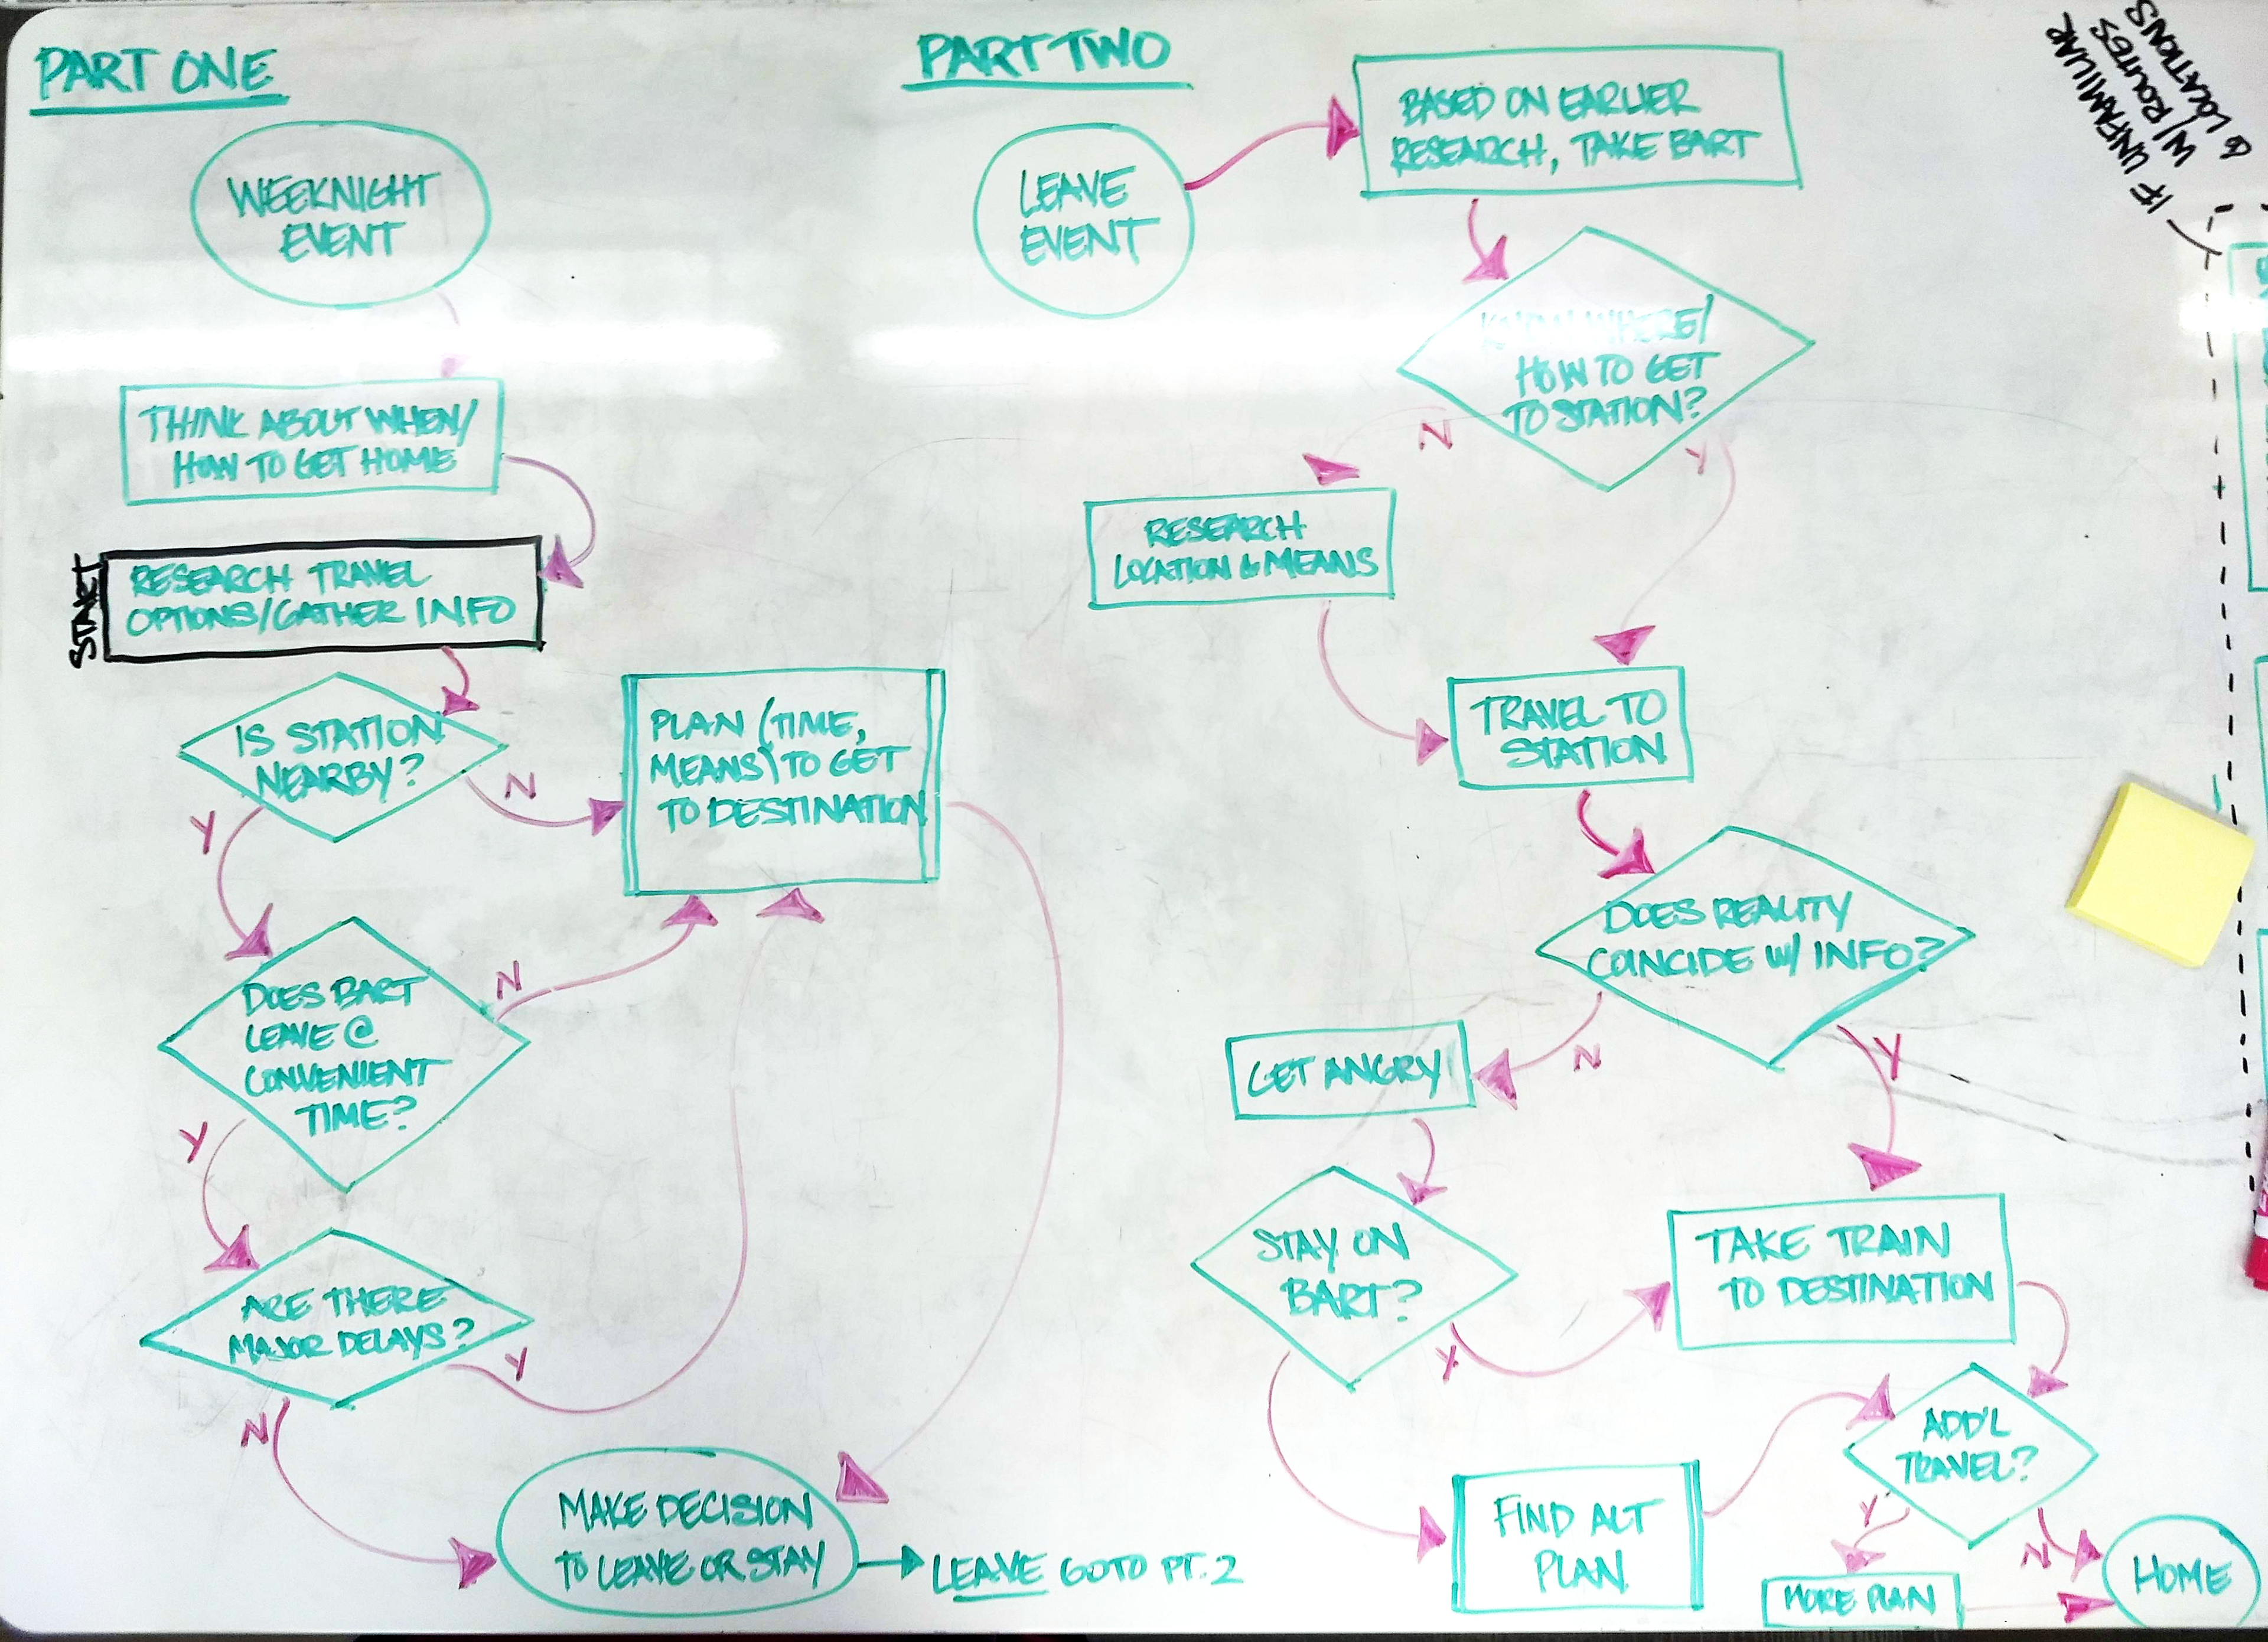 PART ONE
WEEKNIGHT
EVENT
THINK ABOUT WHEN/
HOW TO GET HOME
START
RESEARCH TRAVEL
OPTIONS/GATHER INFO
IS STATION
NEARBY?
N
Y
PLAN (TIME,
MEANS) TO GET
TO DESTINATION
DOES BART
LEAVE @
CONVENIENT
TIME?
N
Y
ARE THERE
MAJOR DELAYS?
Y
N
MAKE DECISION
TO LEAVE OR STAY
LEAVE GOTO PT. 2
PART TWO
LEAVE
EVENT
BASED ON EARLIER
RESEARCH, TAKE BART
KNOW WHERE/
HOW TO GET
TO STATION?
N
Y
RESEARCH
LOCATION & MEANS
TRAVEL TO
STATION
DOES REALITY
COINCIDE W/ INFO?
N
Y
GET ANGRY!
STAY ON
BART?
Y
TAKE TRAIN
TO DESTINATION
FIND ALT
PLAN
ADD'L
TRAVEL?
Y
N
MORE PLAN
HOME
IF UNFAMILIAR
W/ ROUTES
& LOCATIONS